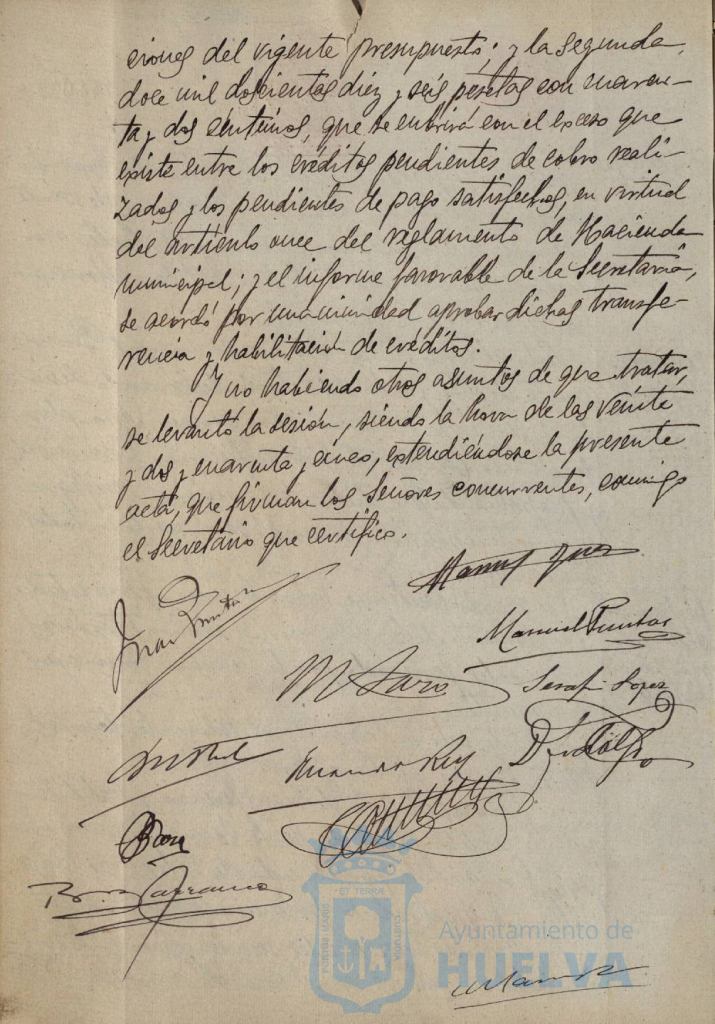 ciones del vigente presupuesto; y la segunda,
doce mil doscientas diez y seis pesetas con cuaren-
ta y dos céntimos, que se cubrirá con el exceso que
existe entre los créditos pendientes de cobro reali-
zados y los pendientes de pago satisfechos, en virtud
del artículo once del reglamento de Hacienda
municipal; y el informe favorable de la Secretaría,
se acordó por unanimidad aprobar dichas transfe-
rencia y habilitación de créditos.
Y no habiendo otros asuntos de que tratar,
se levantó la sesión, siendo la hora de las veinte
y dos y cuarenta y cinco, extendiéndose la presente
acta, que firman los Señores concurrentes, conmigo
el Secretario que certifico.
Manuel
Juan
Manuel
M
Serafín Lopez
Rey
PORTUS MARIS ET TERRAE CUSTODIA
Ayuntamiento de
HUELVA